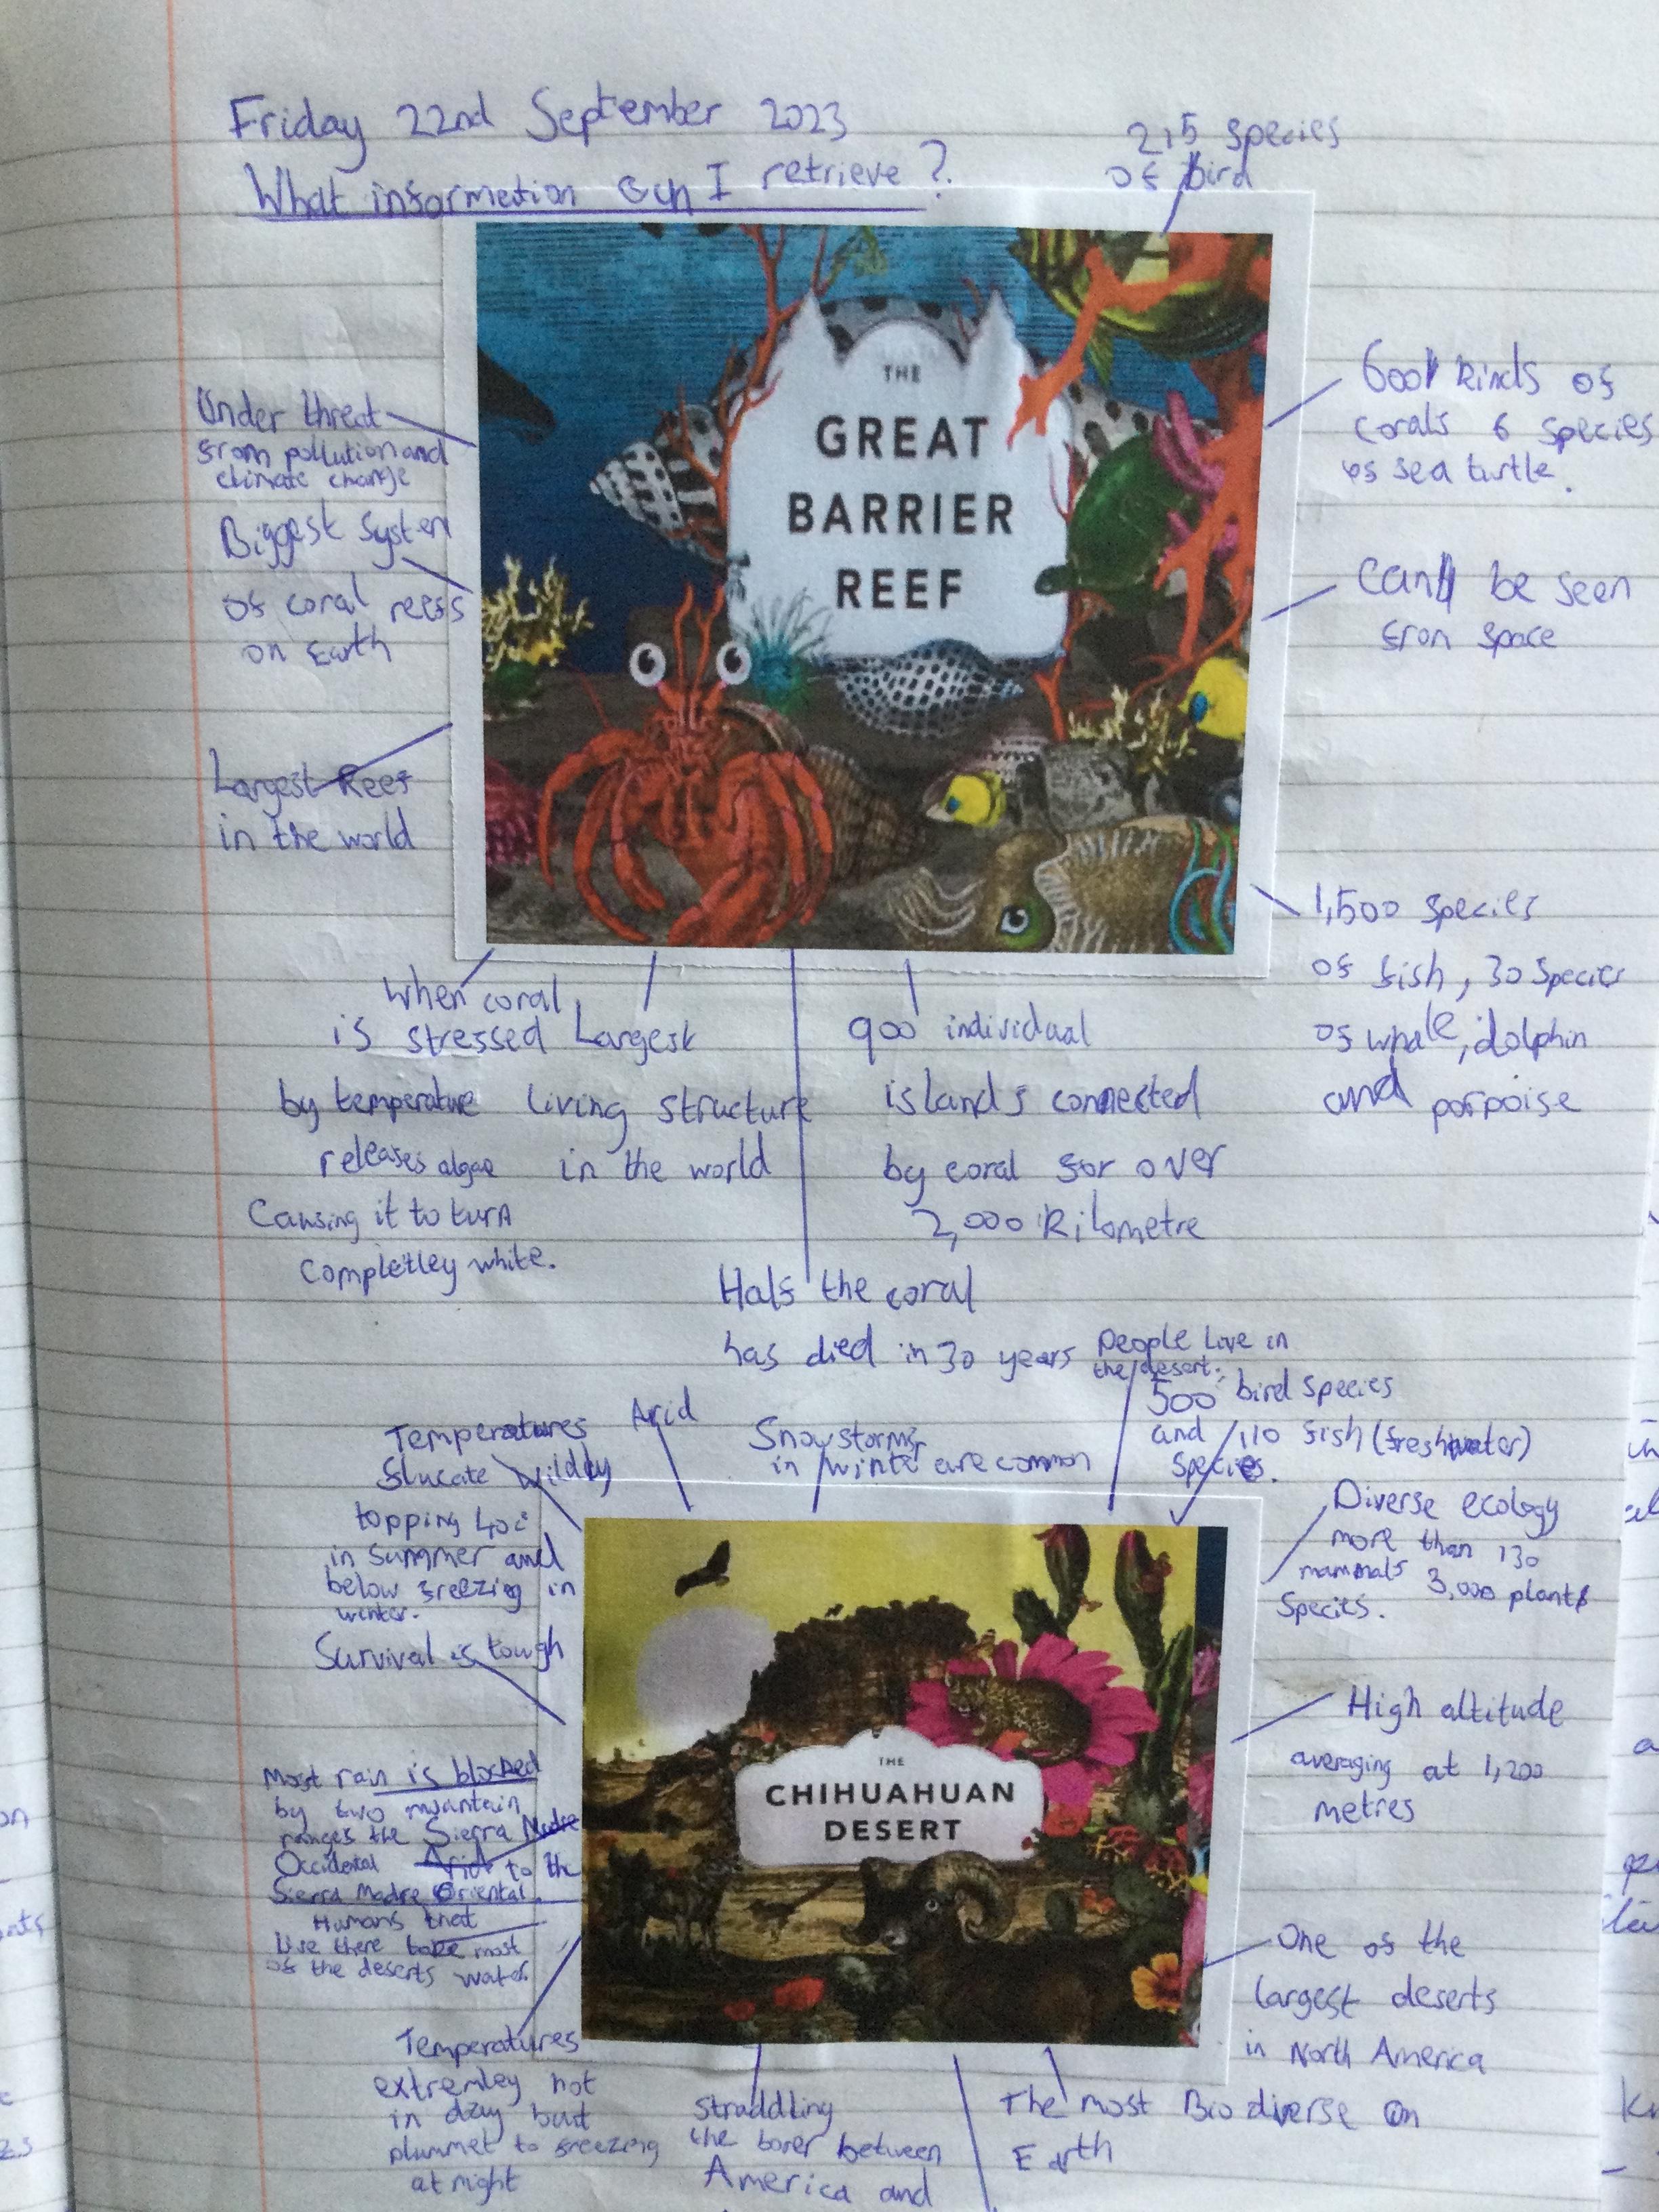 Friday 22nd September 2023
What information can I retrieve?
215 species
of bird
THE
GREAT
BARRIER
REEF
Under threat
from pollution and
climate change
Biggest System
of coral reefs
on Earth
Largest Reef
in the world
600 kinds of
corals 6 species
of sea turtle.
Can be seen
from space
1,500 species
of fish, 30 species
of whale, dolphin
and porpoise
When coral
is stressed
by temperature
releases algae
Causing it to turn
Completley white.
Largest
living structure
in the world
900 individual
islands connected
by coral for over
2,000 Kilometre
Half the coral
has died in 30 years
Temperatures
flucate wildly
topping 40c
in summer and
below freezing in
winter.
Arid
Snow storms
in winter are common
People Live in
the desert.
500 bird species
and 110 fish (freshwater)
species.
Diverse ecology
more than 130
mammals 3,000 plants
Species.
Survival is tough
THE
CHIHUAHUAN
DESERT
High altitude
averaging at 1,200
metres
Most rain is blocked
by two mountain
ranges the Sierra Madre
Occidental to the
Sierra Madre Oriental.
Humans that
live there take most
of the deserts water.
One of the
largest deserts
in North America
Temperatures
extremley hot
in day but
plummet to freezing
at night
Straddling
the borer between
America and
The most Bio diverse on
Earth